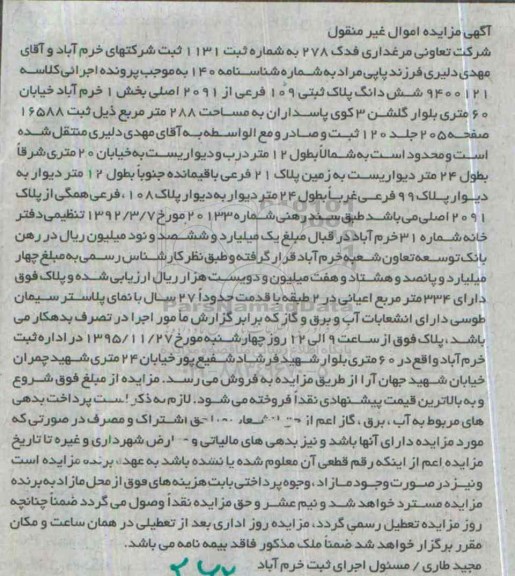 آگهی مزایده اموال غیر منقول
شرکت تعاونی مرغداری فدک ۲۷۸ به شماره ثبت ۱۱۳۱ ثبت شرکتهای خرم آباد و آقای
مهدی دلیری فرزند پاپی مراد به شماره شناسنامه ۱۴۰ به موجب پرونده اجرائی کلاسه
۹۴۰۰۱۲۱ شش دانگ پلاک ثبتی ۱۰۹ فرعی از ۲۰۹۱ اصلی بخش ۱ خرم آباد خیابان
۶۰ متری بلوار گلشن ۳ کوی پاسداران به مساحت ۲۸۸ متر مربع ذیل ثبت ۱۶۵۸۸
صفحه ۲۰۵ جلد ۱۲۰ ثبت و صادر و مع الواسطه به آقای مهدی دلیری منتقل شده
است و محدود است به شمالا بطول ۱۲ متر درب و دیواریست به خیابان ۲۰ متری شرقا
بطول ۲۴ متر دیواریست به زمین پلاک ۲۱ فرعی باقیمانده جنوبا بطول ۱۲ متر دیوار به
دیوار پلاک ۹۹ فرعی غربا بطول ۲۴ متر دیوار به دیوار پلاک ۱۰۸، فرعی همگی از پلاک
۲۰۹۱ اصلی می باشد طبق سند رهنی شماره ۲۰۱۳۳ مورخ ۱۳۹۲/۳/۷ تنظیمی دفتر
خانه شماره ۳۱ خرم آباد در قبال مبلغ یک میلیارد و ششصد و نود میلیون ریال در رهن
بانک توسعه تعاون شعبه خرم آباد قرار گرفته و طبق نظر کارشناس رسمی به مبلغ چهار
میلیارد و پانصد و هشتاد و هفت میلیون و دویست هزار ریال ارزیابی شده و پلاک فوق
دارای ۳۳۴ متر مربع اعیانی در ۲ طبقه با قدمت حدودا ۲۷ سال با نمای پلاستر سیمان
طوسی دارای انشعابات آب و برق و گاز که برابر گزارش مأمور اجرا در تصرف بدهکار می
باشد، پلاک فوق از ساعت ۹ الی ۱۲ روز چهارشنبه مورخ ۱۳۹۵/۱۱/۲۷ در اداره ثبت
خرم آباد واقع در ۶۰ متری بلوار شهید فرشاد شفیع پور خیابان ۲۴ متری شهید چمران
خیابان شهید جهان آرا از طریق مزایده به فروش می رسد. مزایده از مبلغ فوق شروع
و به بالاترین قیمت پیشنهادی نقدا فروخته می شود. لازم به ذکر است پرداخت بدهی
های مربوط به آب، برق، گاز اعم از حق اشتراک و مصرف در صورتی که
مورد مزایده دارای آنها باشد و نیز بدهی های مالیاتی و عوارض شهرداری و غیره تا تاریخ
مزایده اعم از اینکه رقم قطعی آن معلوم شده یا نشده باشد به عهده برنده مزایده است
و نیز در صورت وجود مازاد، وجوه پرداختی بابت هزینه های فوق از محل مازاد به برنده
مزایده مسترد خواهد شد و نیم عشر و حق مزایده نقدا وصول می گردد ضمنا چنانچه
روز مزایده تعطیل رسمی گردد، مزایده روز اداری بعد از تعطیلی در همان ساعت و مکان
مقرر برگزار خواهد شد ضمنا ملک مذکور فاقد بیمه نامه می باشد.
مجید طاری / مسئول اجرای ثبت خرم آباد